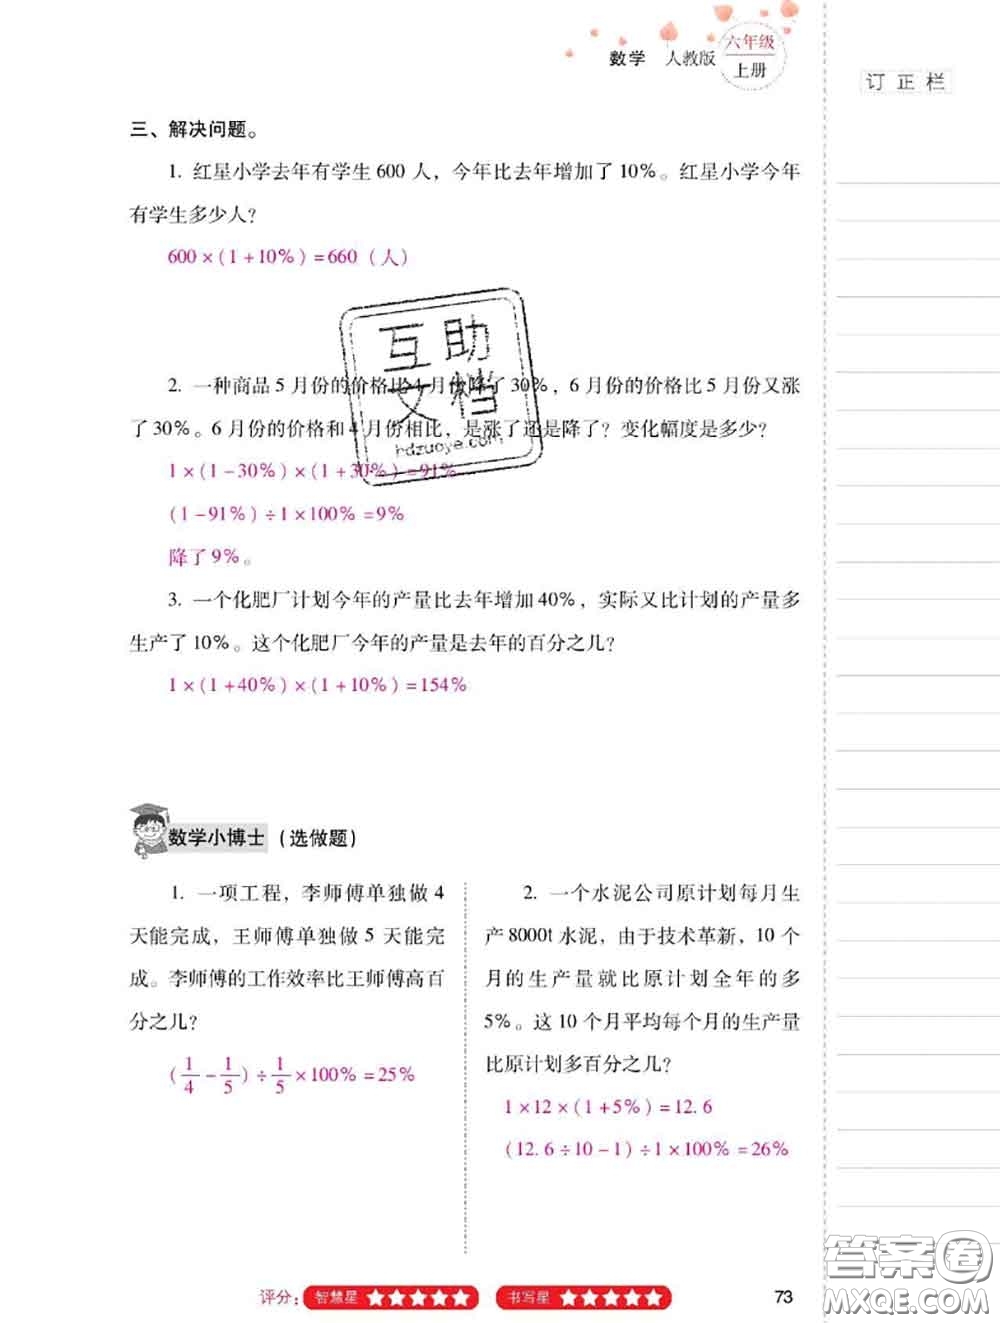 数学 人教版 六年级
上册
订正栏
三、解决问题。
1. 红星小学去年有学生 600 人，今年比去年增加了 10%。红星小学今年
有学生多少人？
600×(1+10%)=660（人）
互助
文档
hdzuoye.com
2. 一种商品 5 月份的价格比 4 月份降了 30%，6 月份的价格比 5 月份又涨
了 30%。6 月份的价格和 4 月份相比，是涨了还是降了？变化幅度是多少？
1×(1-30%)×(1+30%)=91%
(1-91%)÷1×100%=9%
降了 9%。
3. 一个化肥厂计划今年的产量比去年增加 40%，实际又比计划的产量多
生产了 10%。这个化肥厂今年的产量是去年的百分之几？
1×(1+40%)×(1+10%)=154%
数学小博士（选做题）
1. 一项工程，李师傅单独做 4
天能完成，王师傅单独做 5 天能完
成。李师傅的工作效率比王师傅高百
分之几？
(1/4-1/5)÷1/5×100%=25%
2. 一个水泥公司原计划每月生
产 8000t 水泥，由于技术革新，10 个
月的生产量就比原计划全年的多
5%。这 10 个月平均每个月的生产量
比原计划多百分之几？
1×12×(1+5%)=12.6
(12.6÷10-1)÷1×100%=26%
评分：智慧星 ★★★★★ 书写星 ★★★★★
73
答案卷
MXQE.COM